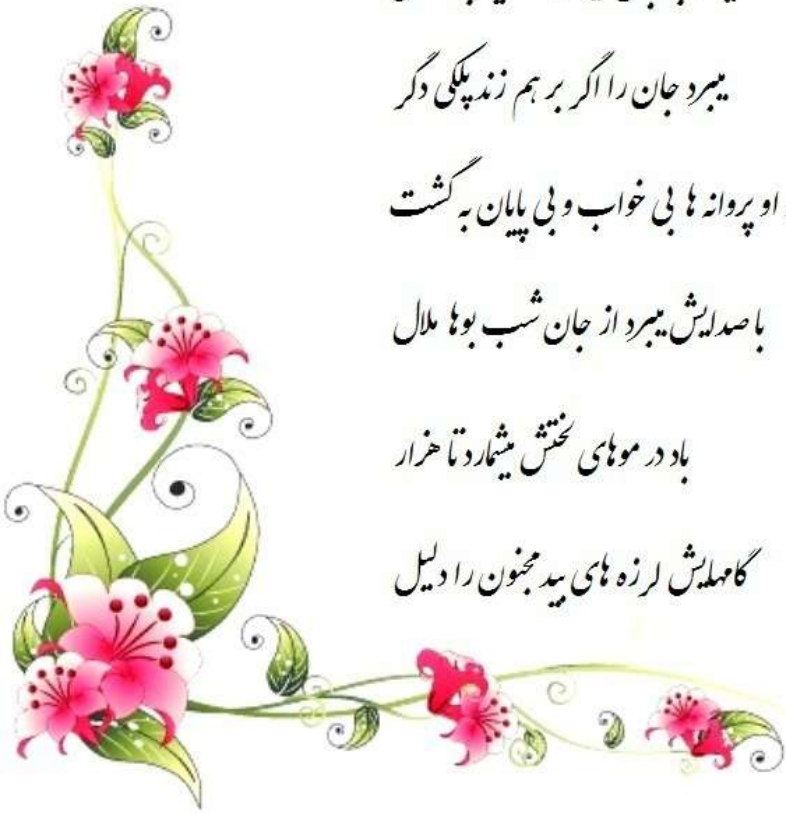 میبرد جان را اگر بر هم زند پلکی دگر
او پروانه ها بی خواب و بی پایان به گشت
با صدایش میبرد از جان شب بوها ملال
باد در موهای لختش میشمارد تا هزار
گامهایش لرزه های بید مجنون را دلیل